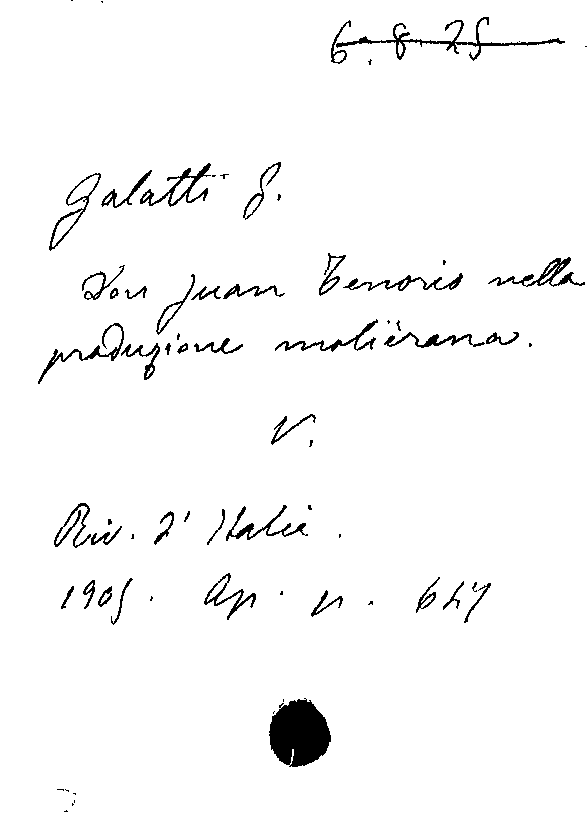 6. 8. 25
Galatti G.
Don Juan Tenorio nella
produzione molièrana.
V.
Riv. d' Italia.
1905. Ap. p. 647